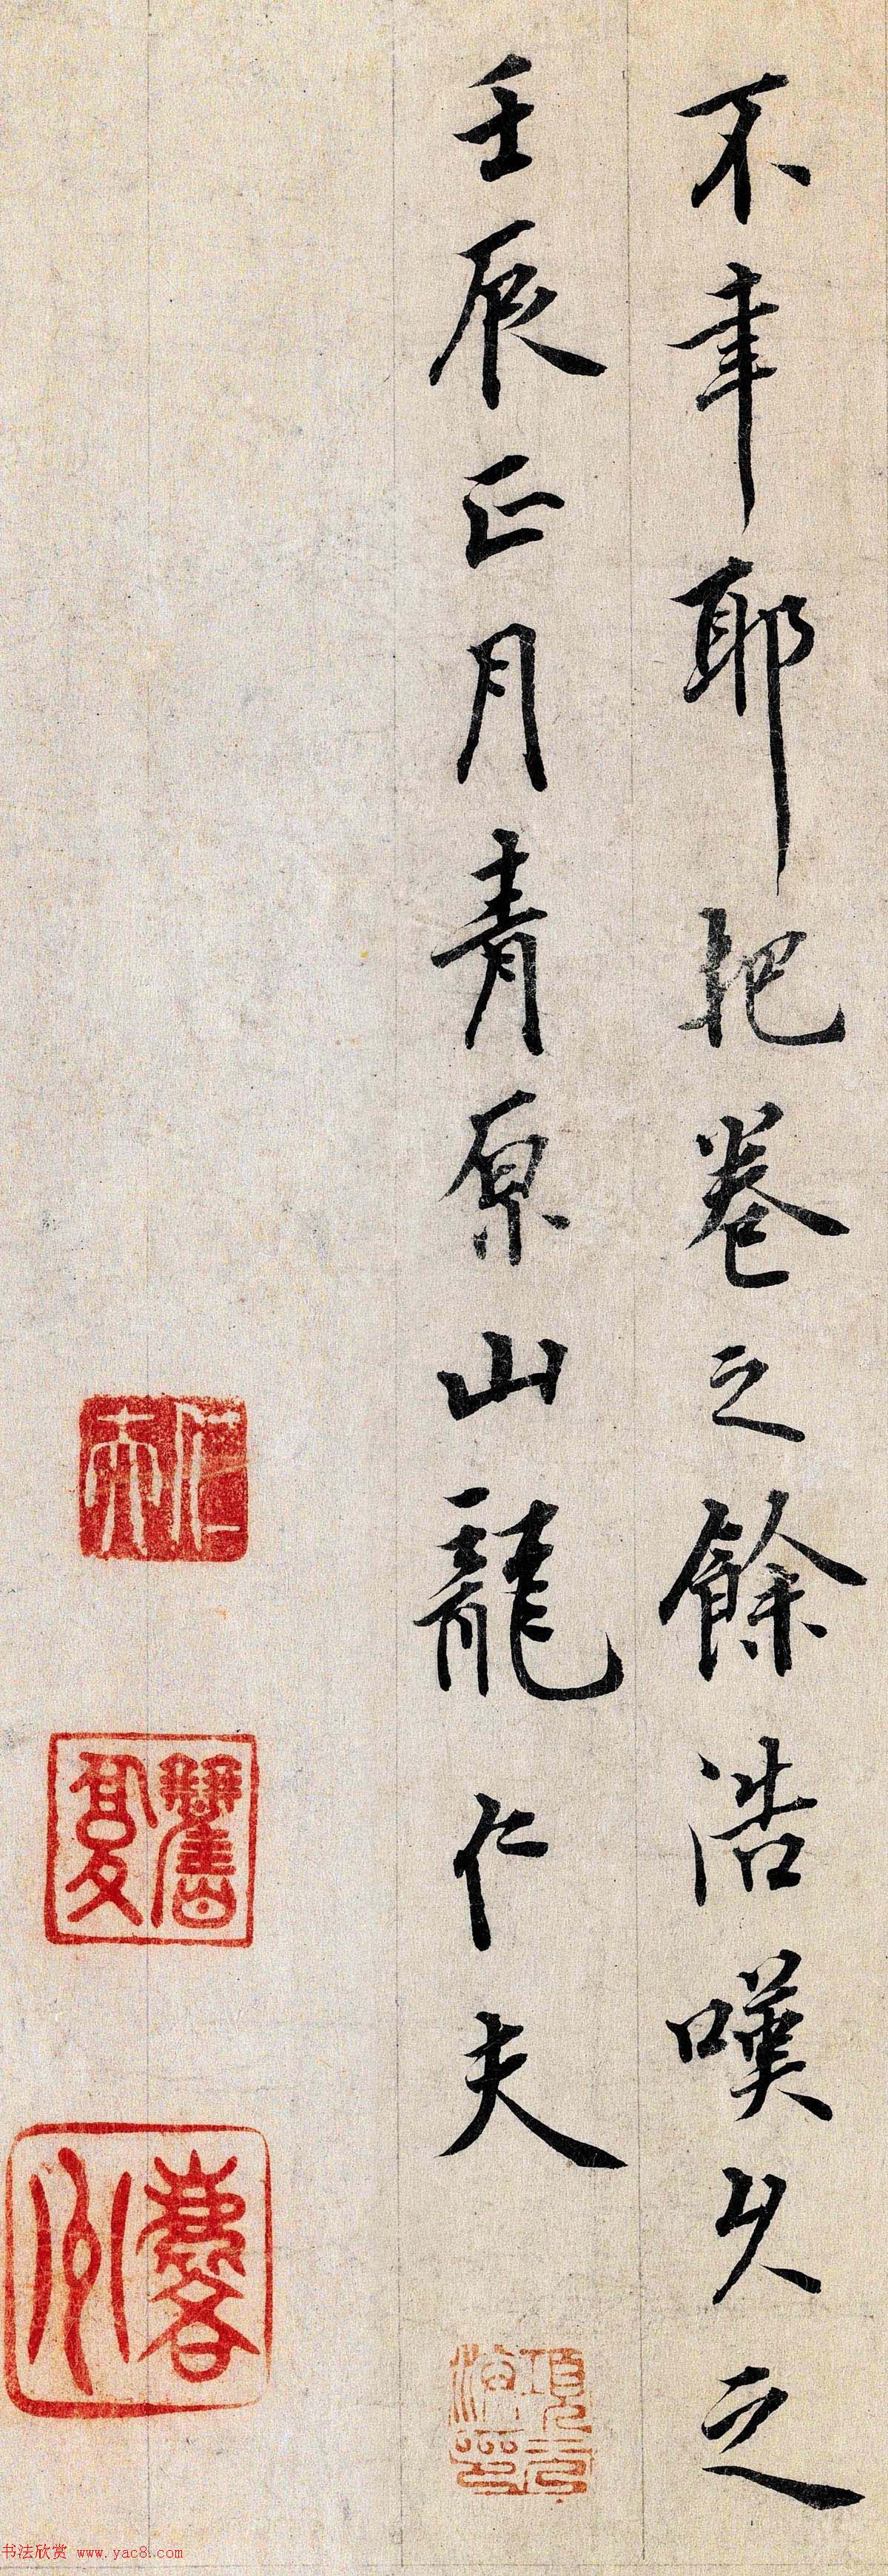 不幸耶把卷之餘浩嘆久之
壬辰正月青原山龍仁夫
仁夫
項元汴印
书法欣赏 www.yac8.com